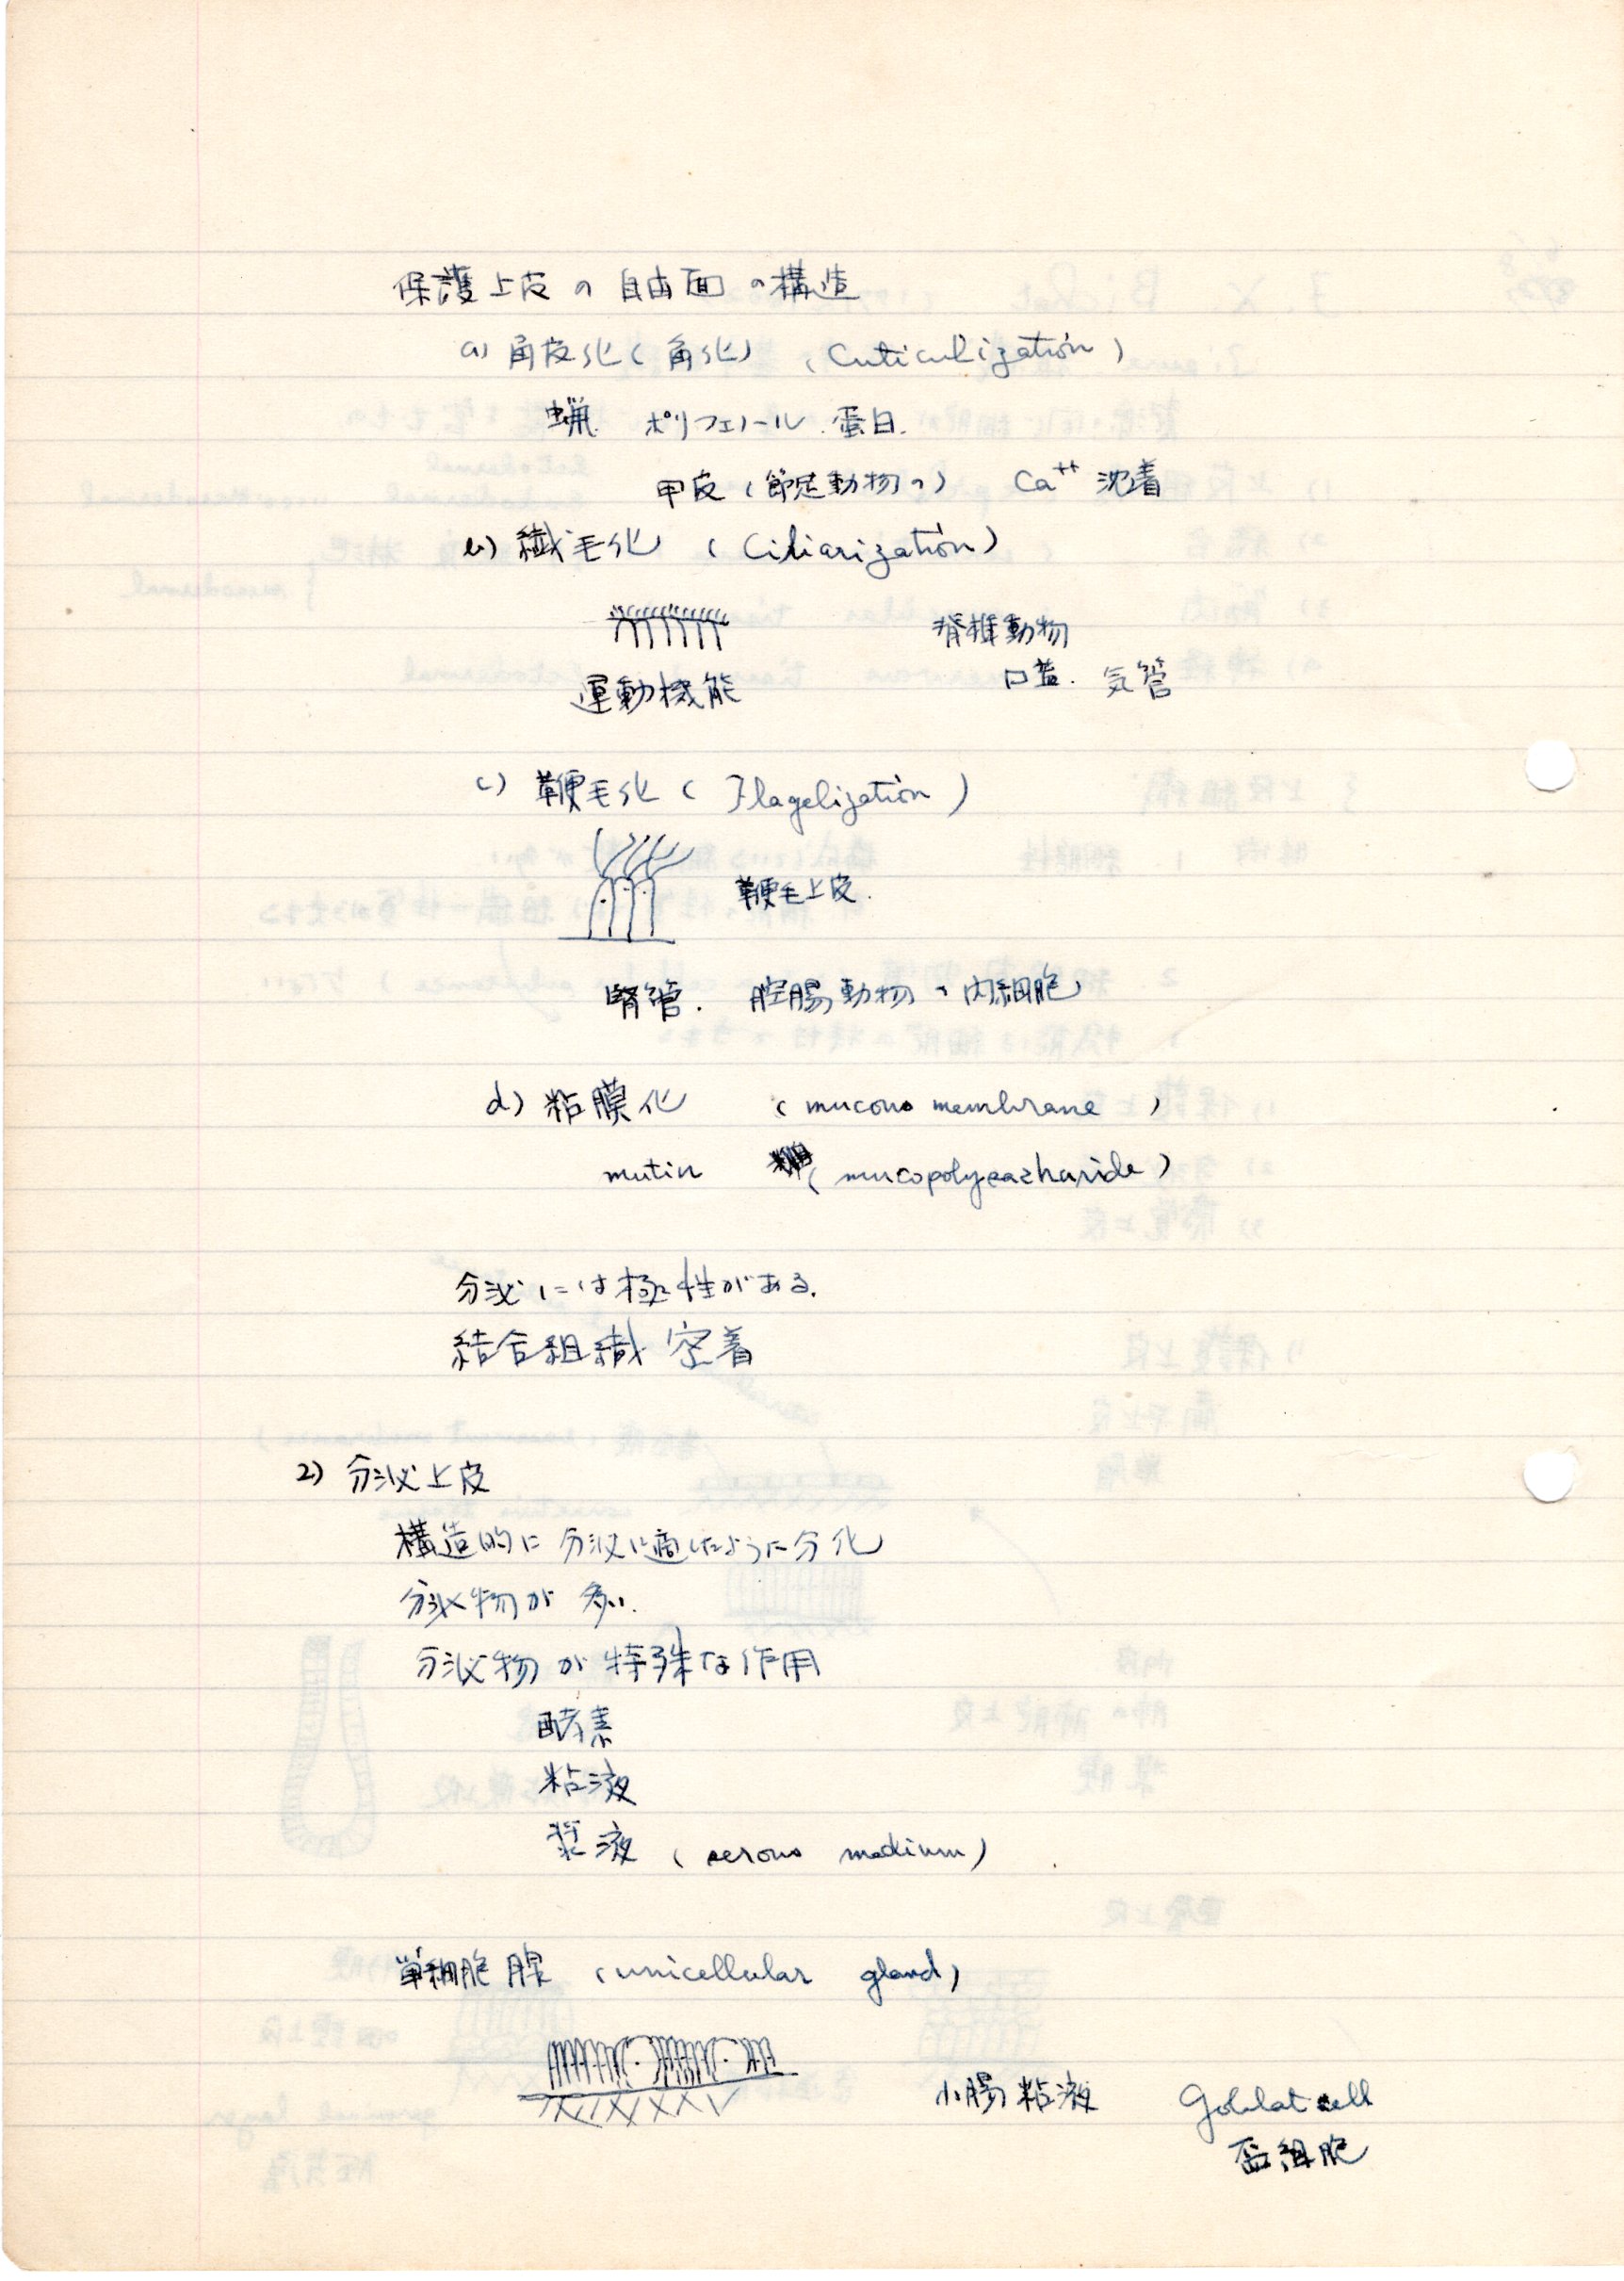 保護上皮の自由面の構造
a) 角皮化(角化) (Cuticulization)
蝋. ポリフェノール. 蛋白.
甲皮(節足動物の) Ca++ 沈着
b) 繊毛化 (Ciliarization)
脊椎動物
運動機能 口蓋. 気管
c) 鞭毛化 (Flagelization)
鞭毛上皮.
腎管. 腔腸動物の内細胞
d) 粘膜化 (mucous membrane)
mutin (mucopolysaccharide)
分泌には極性がある.
結合組織 密着
2) 分泌上皮
構造的に分泌に適したように分化
分泌物が多い.
分泌物が特殊な作用
酵素
粘液
漿液 (serous medium)
単細胞腺 (unicellular gland)
小腸粘液 Goblat cell
盃細胞